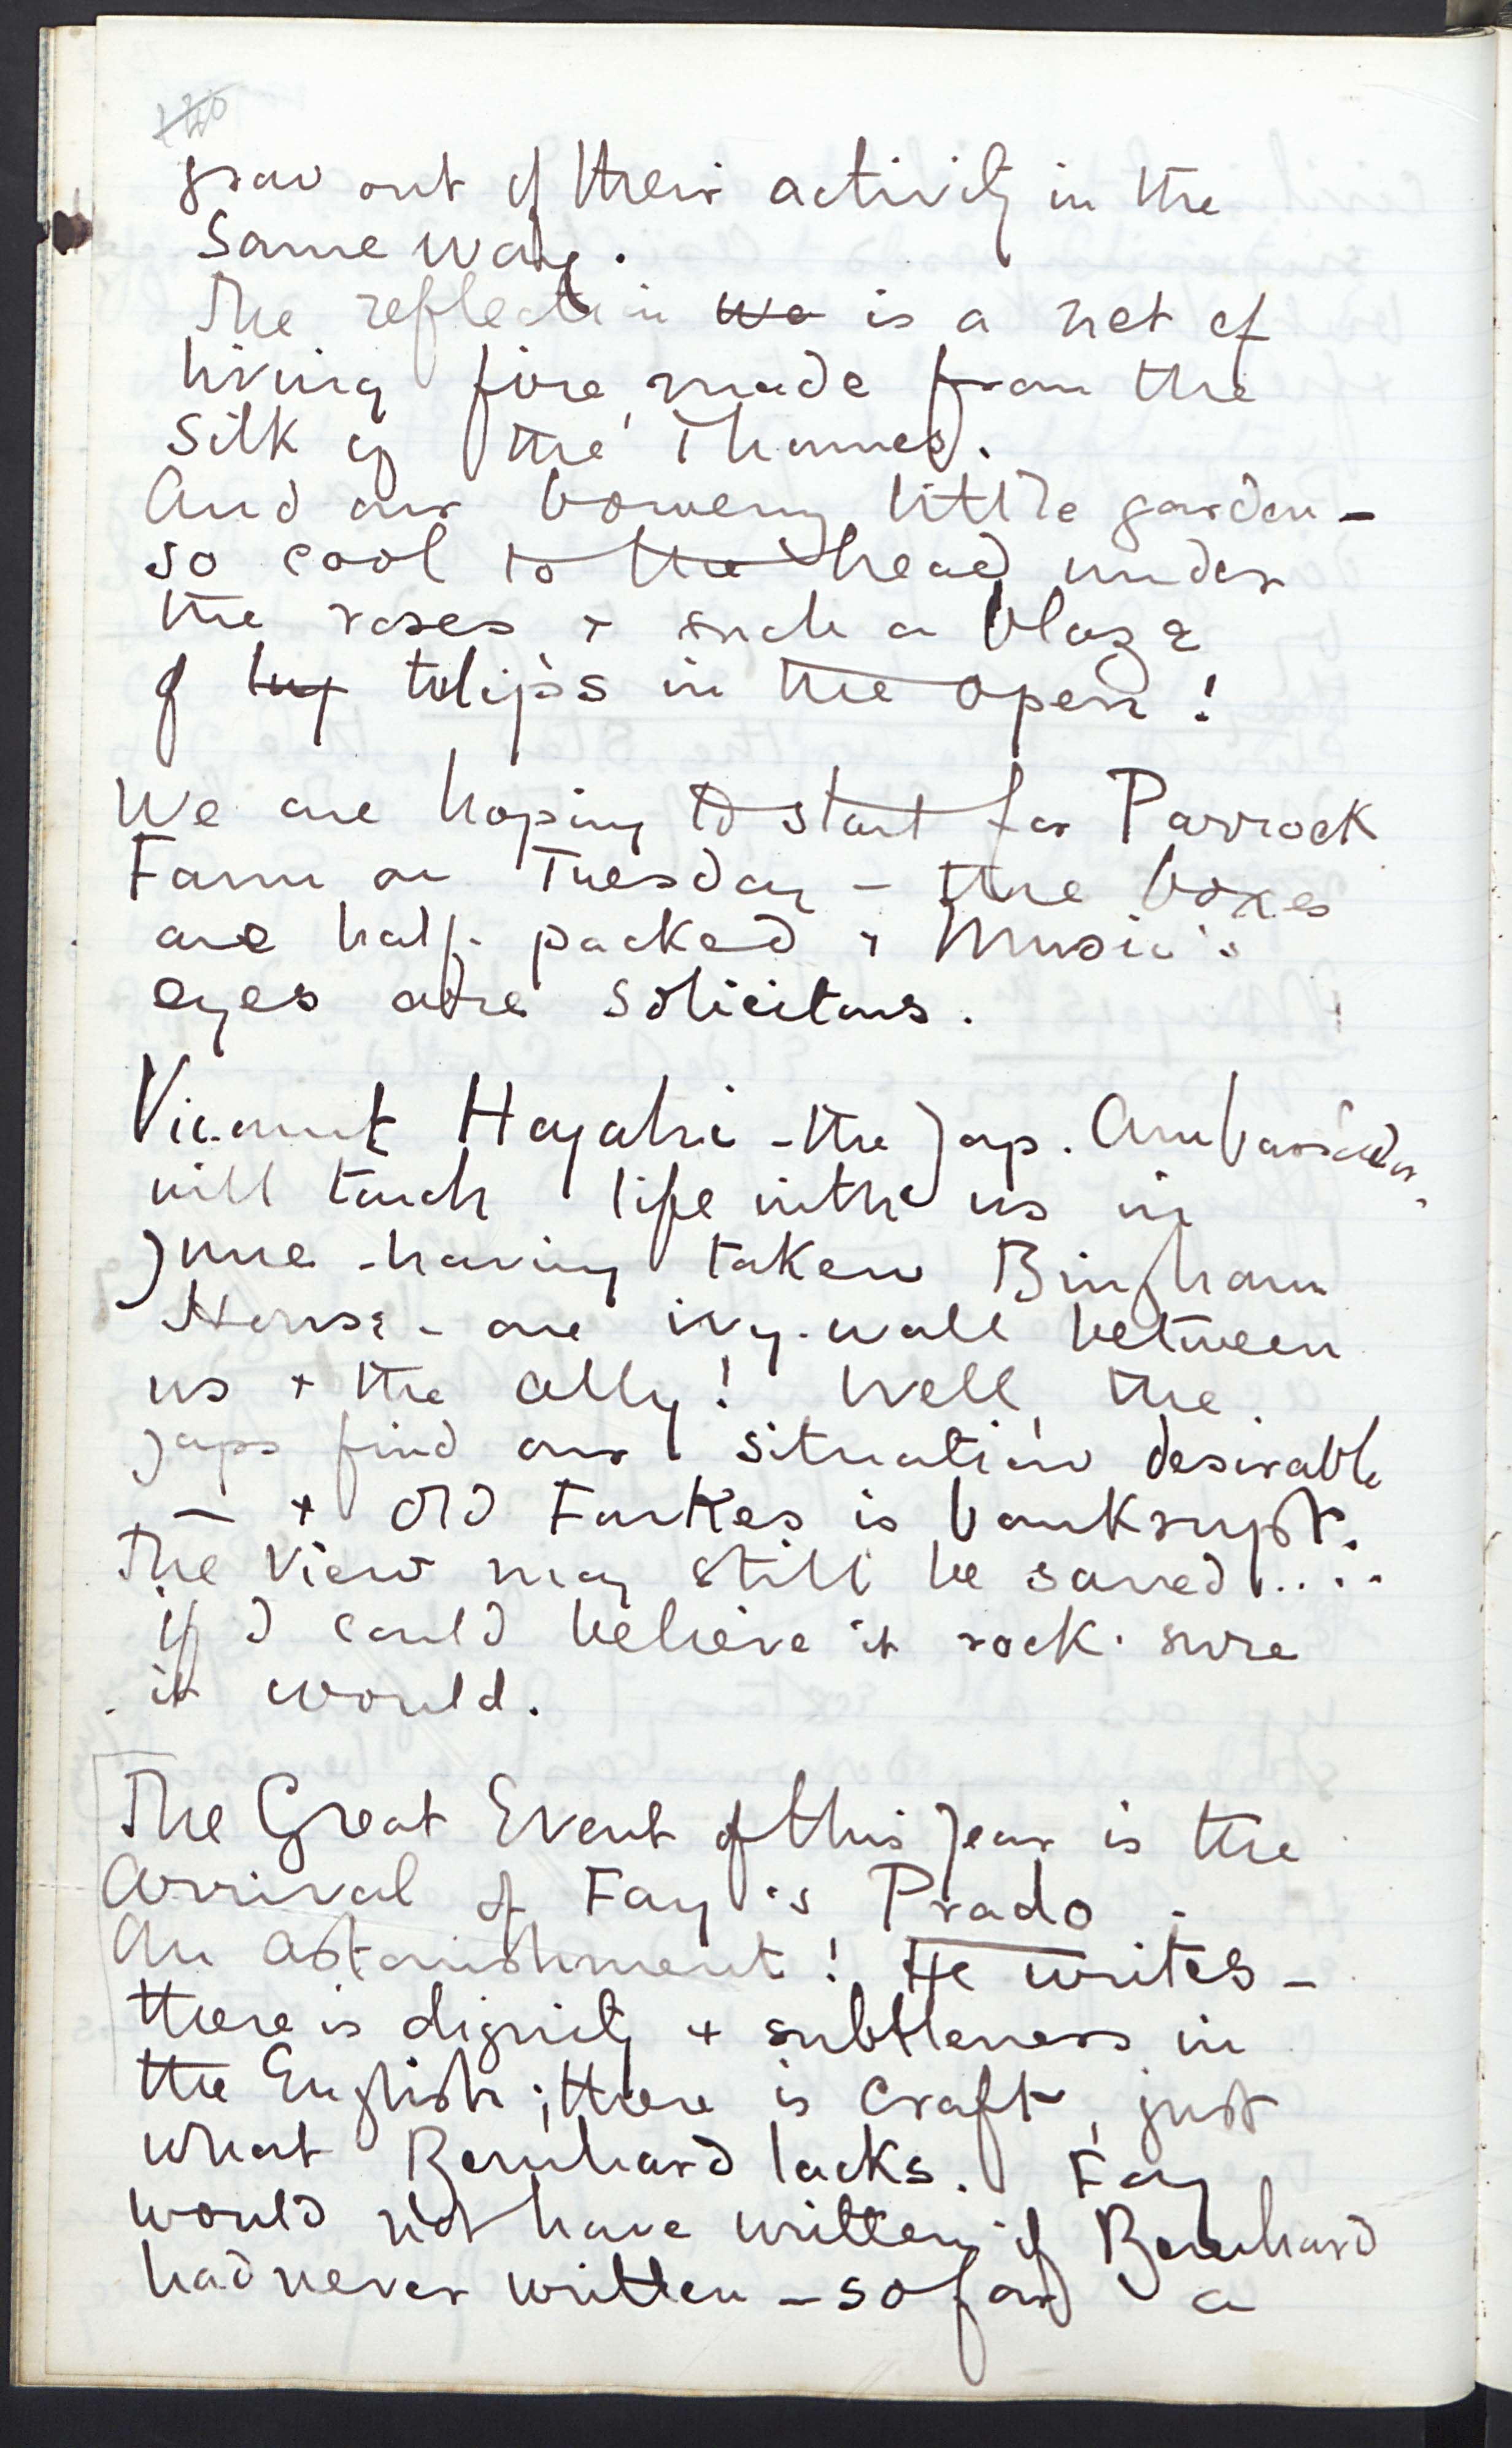 grow out of their activity in the
same way.
The reflection wa is a net of
living fire, made from the
silk of the Thames.
And our bowery little garden –
so cool to the head under
the roses + such a blaze
of tuy tulips in the open!
We are hoping to start for Parrock
Farm on Tuesday – the boxes
are half-packed + Music's
eyes are solicitous.
Vicomt Hayahi – the Jap. Ambassador,
will touch life with us in
June – having taken Bingham
House – one ivy-wall between
us + the ally! Well, the
Japs find our situation desirable
– + Old Farkes is bankrupt.
The view may still be saved ....
if I could believe it rock-sure
it would.
The Great Event of this year is the
Arrival of Fay's Prado.
An astonishment! He writes –
there is dignity + subtleness in
the English; there is craft, just
what Bernhard lacks. Fay
would not have written if Bernhard
had never written – so far a